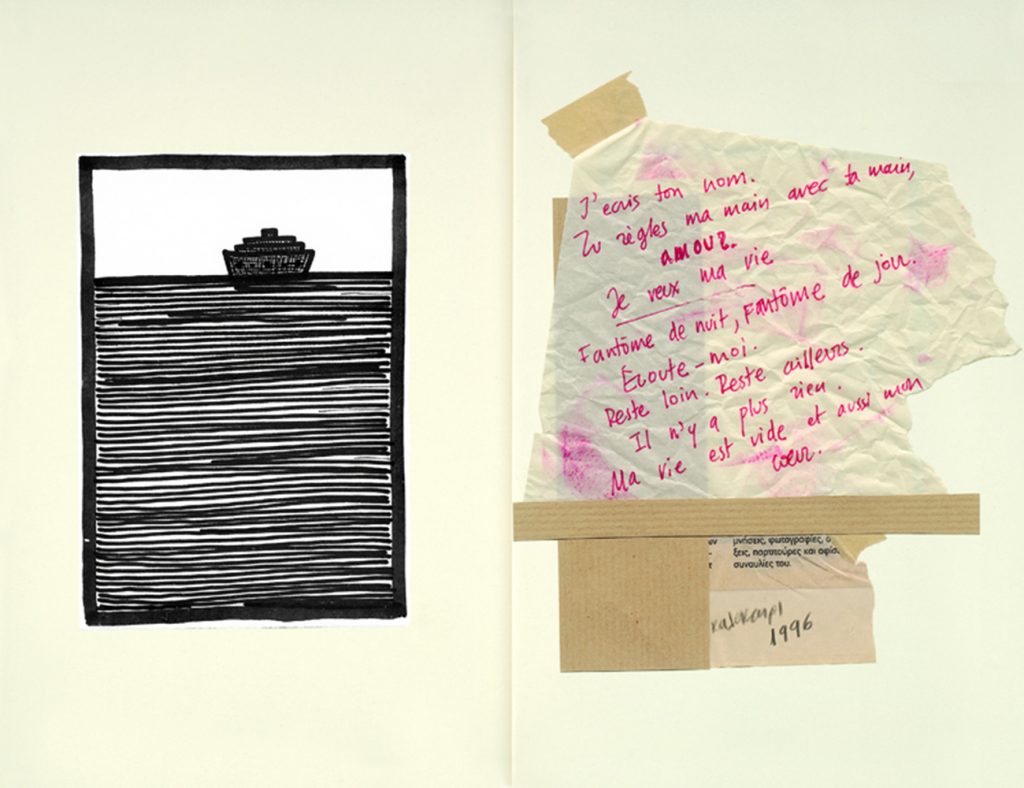 J'ecris ton nom.
Tu règles ma main avec ta main,
amour.
Je veux ma vie
Fantôme de nuit, Fantôme de jour.
Ecoute-moi.
Reste loin. Reste ailleurs.
Il n'y a plus rien.
Ma vie est vide et aussi mon
cœur.
μνήσεις, φωτογραφίες, ο
ξεις, παρτιτούρες και αφίσ
συναυλίες του.
καλοκαιρι
1996